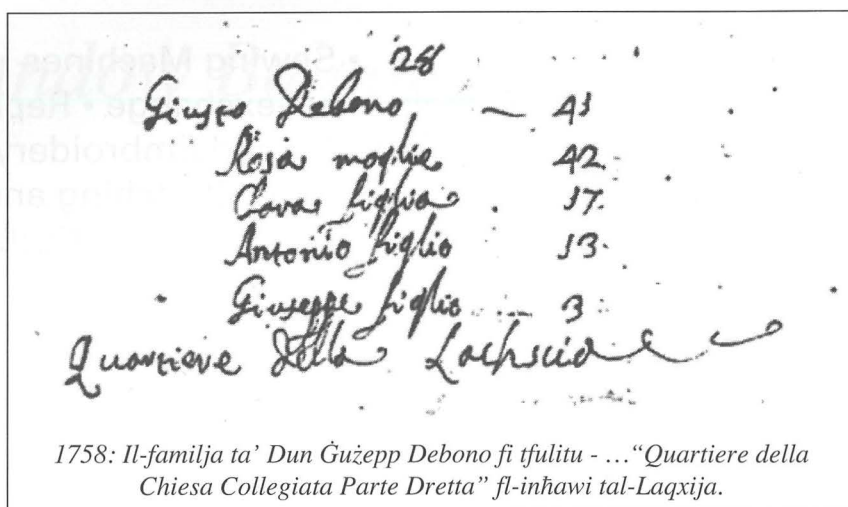 28
Giusto Debono — 41
Rosa moglie 42
Clara figlia . 17.
Antonio figlio 13.
Giuseppe figlio 3
Quartiere della Lachscia
1758: Il-familja ta’ Dun Ġużepp Debono fi tfulitu - …“Quartiere della
Chiesa Collegiata Parte Dretta” fl-inħawi tal-Laqxija.